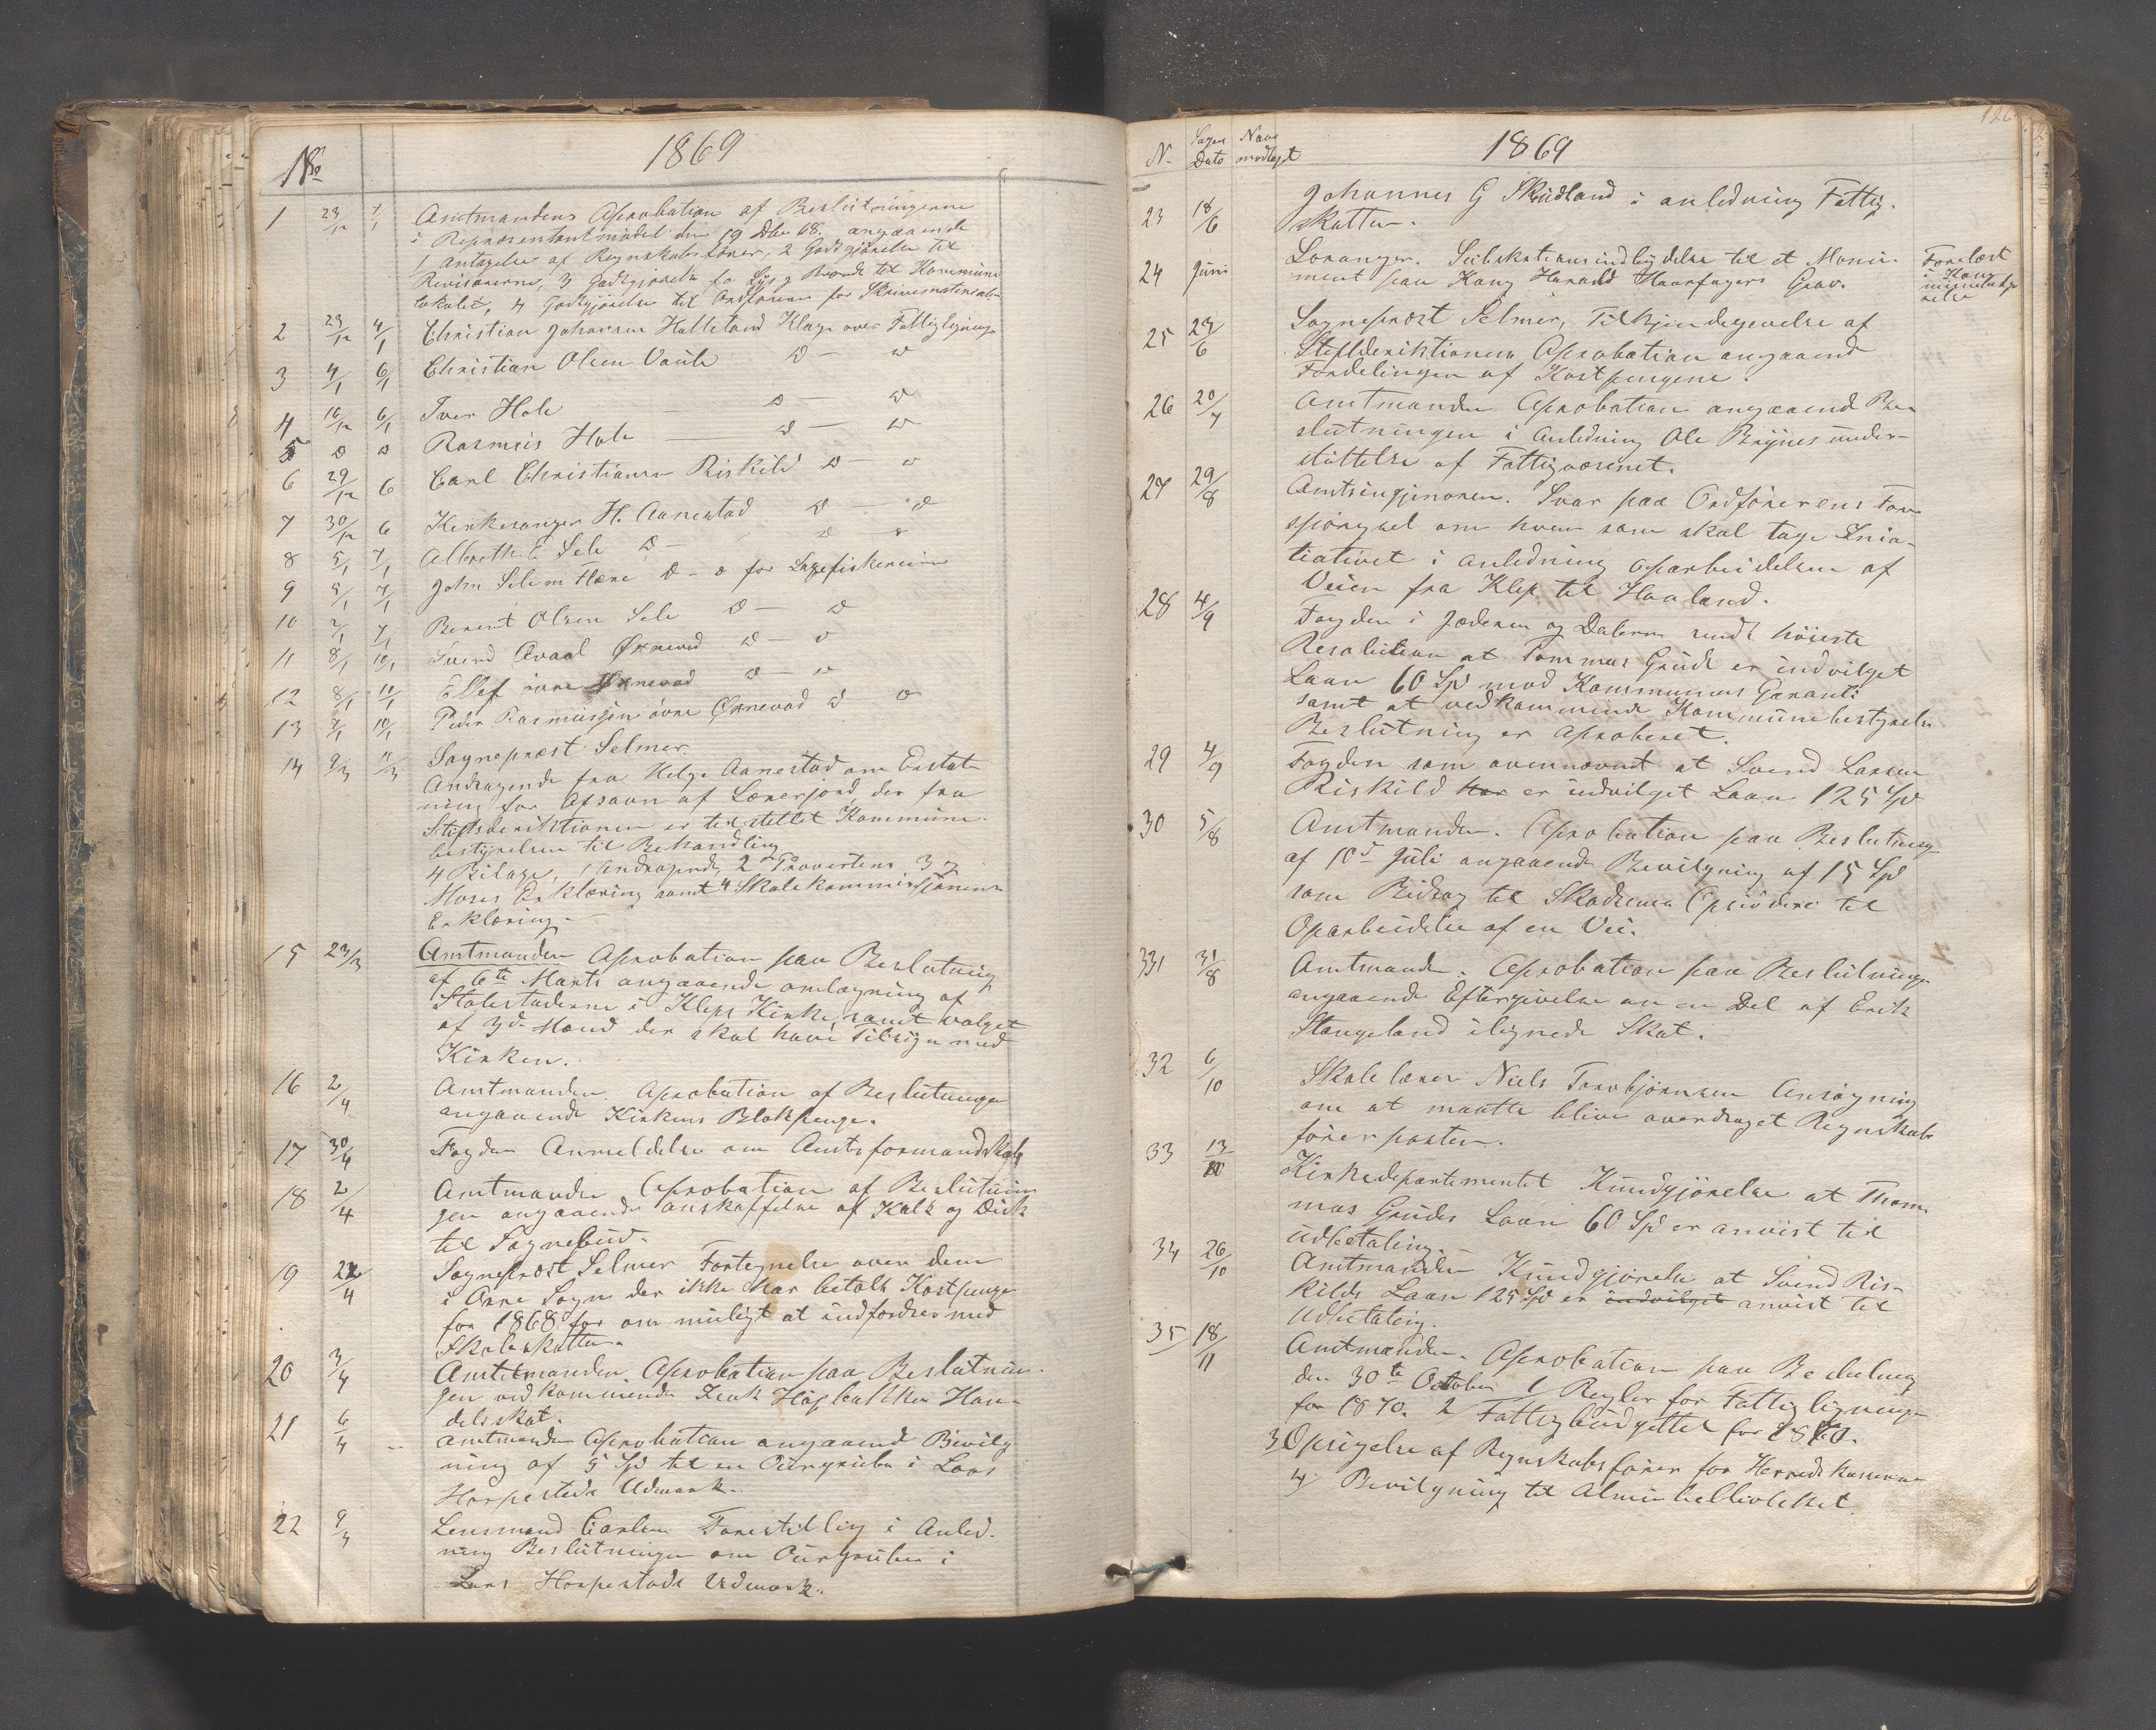 No 1869
1 23/12 7/1 Amtmandens Aprobation af Beslutningerne
i Repræsentantmødet den 19 Dbr 68. angaaende
1/ Antagelse af Regnskabsfører, 2 Godtgjørelse til
Revisorerne, 3 Godtgjørelse for Lys og Brænde til Kommune
lokalet, 4 Godtgjørelse til Ordføreren for Skrivematerialer
2 23/12 4/1 Christian Johansen Halleland Klage over Fattigligninge
3 4/1 6/1 Christian Olsen Vaule D — D
4 16/12 6/1 Iver Hole — D — D
5 D D Rasmus Hole — D — D
6 29/12 6 Carl Christiansen Riskild D — D
7 30/12 6 Kirkesanger H. Aanestad D — D
8 5/1 7/1 Albreth E Sele D — D D
9 5/1 7/1 John Selem Hære D - D for Laxefiskerierne
10 2/1 7/1 Berent Olsen Sele D — D
11 8/1 10/1 Svend Øxnevad D — D
12 8/1 10/1 Ellef øvre Øxnevad D — D
13 7/1 10/1 Peder Rasmussen øvre Øxnevad D D
14 9/3 11/3 Sognepræst Selmer
Andragende fra Helge Aanestad om Erstat
ning for Afsavn af Lærerjord, der fra
Stiftsdirektionen er tilstillet Kommune
bestyrelsen til Behandling
4 Bilage, 1 Andragende, 2 Provstens 3
Moses Erklæring samt 4 Skolekommissionens
Erklæring.
15 23/3 Amtmanden Aprobation paa Beslutning
af 6te Marts angaaende omlægning af
Stolestaderne i Klepp Kirke, samt valget
af 3de Mand der skal have Tilsyn med
Kirken.
16 2/4 Amtmanden. Aprobation af Beslutninge
angaaende Kirkens Blokpenge.
17 30/4 Fogden Anmeldelse om Amtsformandskab
18 2/4 Amtmanden Aprobation af Beslutnin
gen angaaende anskaffelse af Kalk og Disk
til Sognebud.
19 22/4 Sognepræst Selmer Fortegnelse over dem
i Orre Sogn der ikke har betalt Kostpenge
for 1868 for om muligt at indfordres med
Skoleskatten.
20 3/4 Amtmanden. Aprobation paa Beslutnin
gen vedkommende Han
delsskat.
21 6/4 Amtmanden Aprobation angaaende Bevilg
ning af 5 Spd til en Ourgrube i Lars
Horpestads Udmark.
22 9/4 Lensmand Carlsen Forestilling i Anled
ning Beslutningen om Ourgruben i
Lars Horpestads Udmark.
126
N. Sagens Dato Naar modtagt 1869
23 18/6 Johannes G Skudland i anledning Fattig
skatten.
24 Juni Sorenger. Subskriptionsindbydelse til et Monu
ment paa Kong Harald Haarfagers Grav.
Forelæst
i Kom
munebesty
relse
25 23/6 Sognepræst Selmer, Tilkjendegivelse af
Stiftsdirektionens Aprobation angaaende
Fordelingen af Kostpengene.
26 20/7 Amtmanden Aprobation angaaende Be
slutningen i Anledning Ole Brynes under-
støttelse af Fattigvæsenet.
27 29/8 Amtsingjenøren. Svar paa Ordførerens Fore
spørgsel om hvem som skal tage Inia-
tiativet i anledning oparbeidelsen af
Veien fra Klep til Haaland.
28 4/9 Fogden i Jæderen og Dalerne sendt høieste
Resolution at Tommas Grude er indvilget
Laan 60 Spd mod Kommunens Garanti
samt at vedkommende Kommunebestyrelse
Beslutning er Aproberet.
29 4/9 Fogden som ovennævnt at Svend Larsen
Riskild har er indvilget Laan 125 Spd
30 5/8 Amtmanden. Aprobation paa Beslutning
af 10de Juli angaaende Bevilgning af 15 Spd
som Bidrag til Skadsem Opsidere til
Oparbeidelse af en Vei.
331 31/8 Amtmanden. Aprobation paa Beslutninge
angaaende Eftergivelse an en Del af Erik
Stangeland ilignede Skat.
32 6/10 Skolelærer Niels Torbjørnsen Ansøgning
om at maatte blive overdraget Regnskabs
førerposten.
33 13/10 Kirkedepartementet Kundgjørelse at Thom
mas Grudes Laan 60 Spd er anvist til
Udbetaling.
34 26/10 Amtmanden Kundgjørelse at Svend Ris-
kilds Laan 125 Spd er indvilget anvist til
Udbetaling.
35 18/11 Amtmanden. Aprobation paa Beslutning
den 30te October 1/ Regler for Fattigligningen
for 1870. 2 Fattigbudgettet for 1870.
3 Opsigelse af Regnskabsfører for Herredskasserne
4/ Bevilgning til Almuebibliotheket